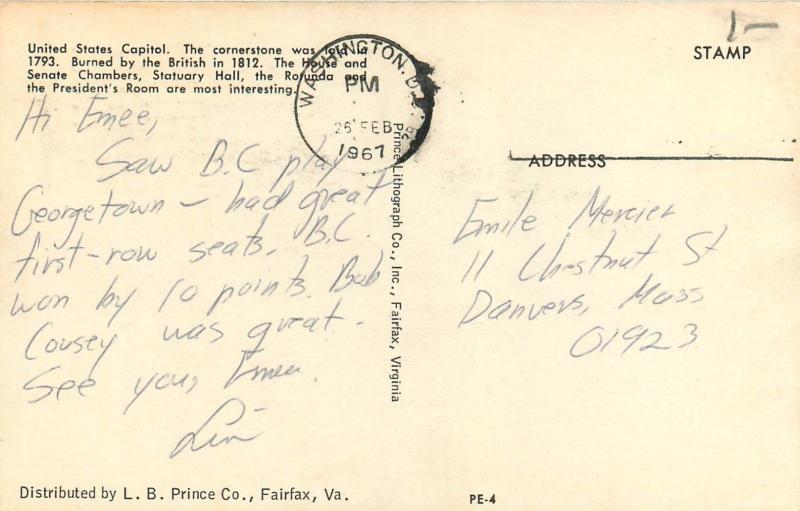 United States Capitol. The cornerstone was laid in
1793. Burned by the British in 1812. The House and
Senate Chambers, Statuary Hall, the Rotunda and
the President's Room are most interesting.
WASHINGTON, D.C.
PM
26 FEB
1967
1-
STAMP
ADDRESS
Hi Emee,
Saw B.C play
Georgetown - had great
first-row seats. B.C.
won by 10 points. Bob
Cousey was great.
See you,
Prince Lithograph Co., Inc., Fairfax, Virginia
Emile Mercier
11 Chestnut St
Danvers, Mass
01923
Distributed by L. B. Prince Co., Fairfax, Va.
PE-4